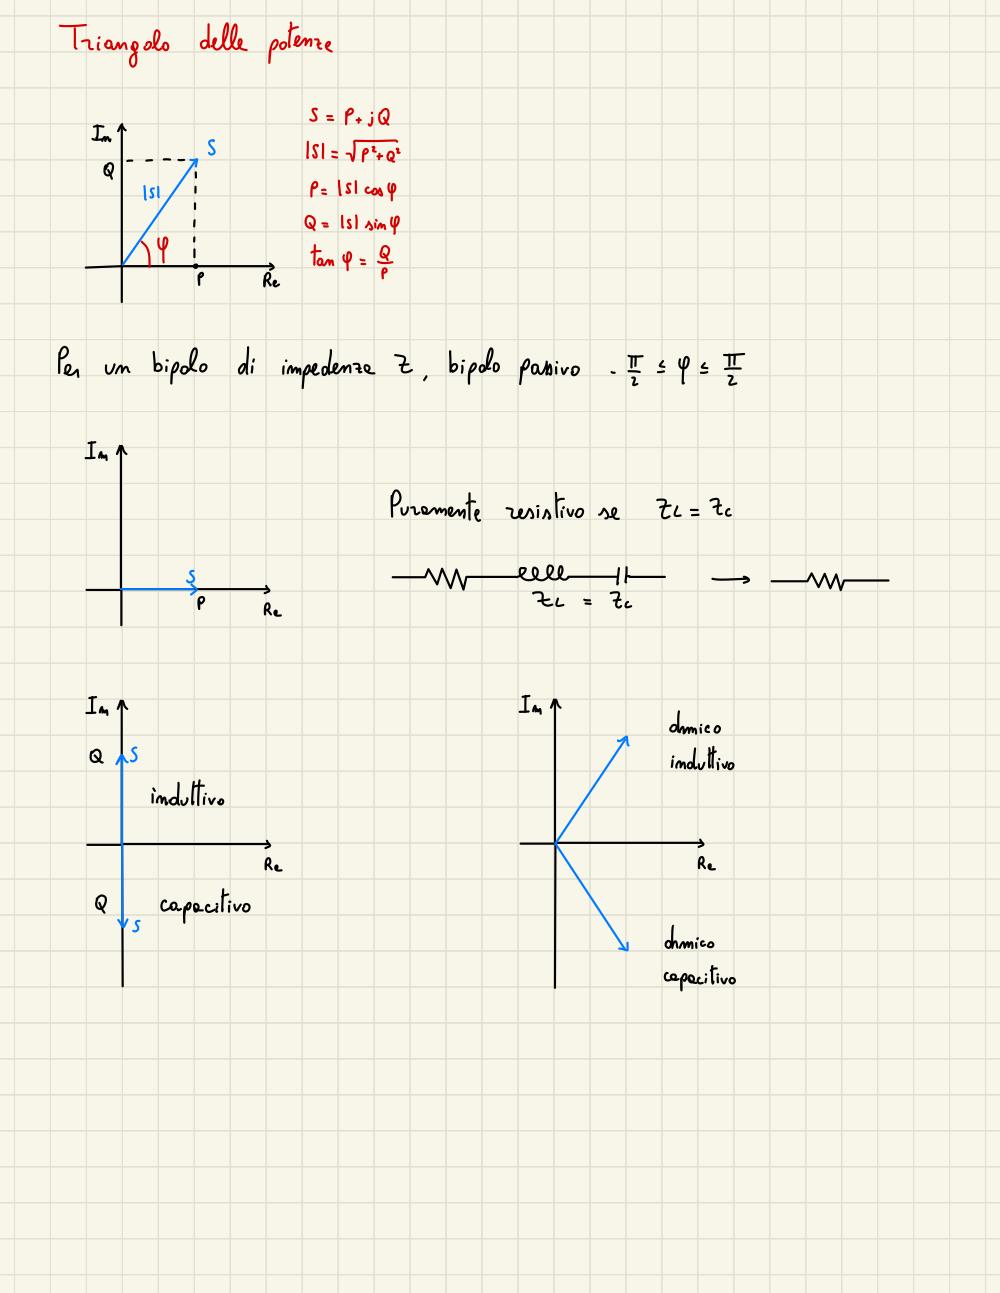 Triangolo delle potenze
Im
Q
S
|S|
φ
P
Re
S = P + jQ
|S| = √P²+Q²
P = |S| cos φ
Q = |S| sin φ
tan φ = Q/P
Per un bipolo di impedenza Z, bipolo passivo - π/2 ≤ φ ≤ π/2
Im
S
P
Re
Puramente resistivo se ZL = Zc
ZL = Zc
Im
Q S
induttivo
Re
Q
capacitivo
S
Im
ohmico
induttivo
Re
ohmico
capacitivo